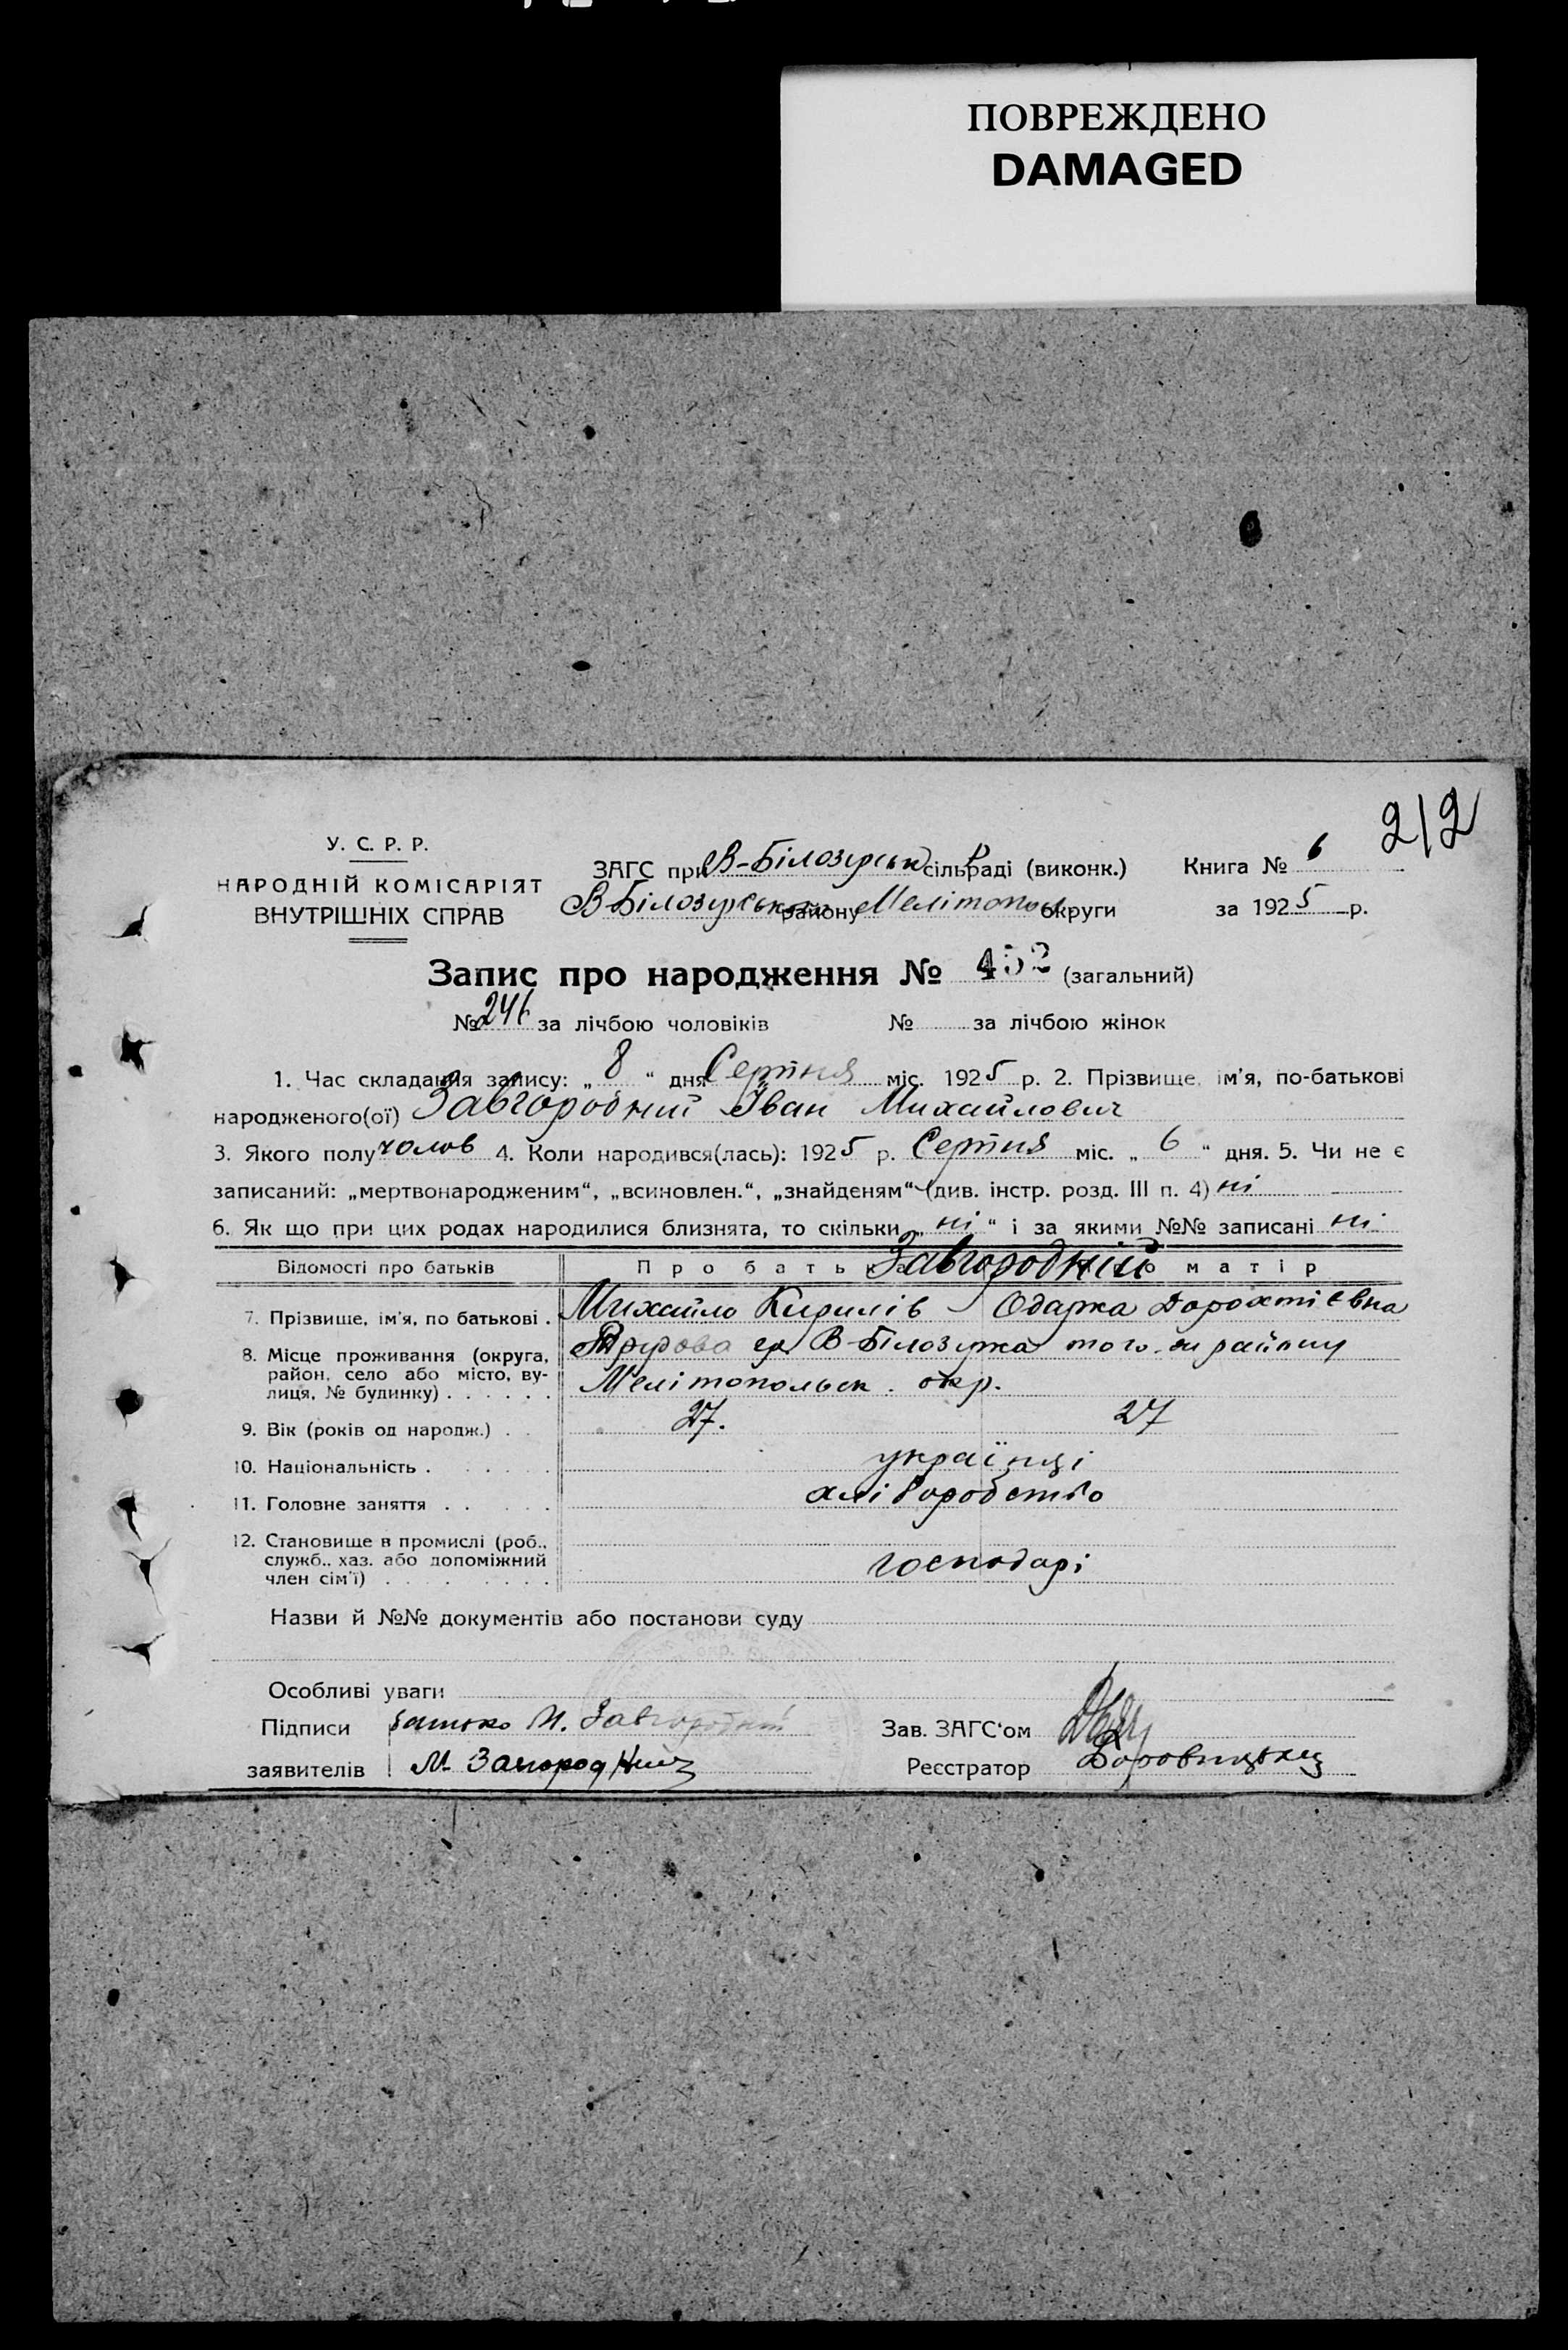 ПОВРЕЖДЕНО
DAMAGED
212
У. С. Р. Р.
НАРОДНІЙ КОМІСАРІЯТ
ВНУТРІШНІХ СПРАВ
ЗАГС при В-Білозерськ сільраді (виконк.) Книга № 6
В-Білозерськ району Мелітопол округи за 1925 р.
Запис про народження № 452 (загальний)
№ 246 за лічбою чоловіків № за лічбою жінок
1. Час складання запису: „ 8 “ дня Серпня міс. 1925 р. 2. Прізвище, ім'я, по-батькові
народженого(ої) Завгородний Іван Михайлович
3. Якого полу чолов 4. Коли народився(лась): 1925 р. Серпня міс. „ 6 “ дня. 5. Чи не є
записаний: „мертвонародженим“, „всиновлен.“, „знайденям“ (див. інстр. розд. III п. 4) ні
6. Як що при цих родах народилися близнята, то скільки „ ні “ і за якими №№ записані ні
Відомості про батьків Про батька Про матір
Завгородний
7. Прізвище, ім'я, по батькові . Михайло Кирилів Одарка Дорохтієвна
8. Місце проживання (округа, район, село або місто, вулиця, № будинку) . . . . . . В-Білозерка того-ж району
Мелітопольск. окр.
9. Вік (років од народж.) . . 27. 27
10. Національність . . . . . . українці
11. Головне заняття . . . . . хліборобство
12. Становище в промислі (роб.,
служб., хаз. або допоміжний
член сім'ї) . . . . . . . . господарі
Назви й №№ документів або постанови суду
Особливі уваги
Підписи батько М. Завгородний Зав. ЗАГС'ом
заявителів М. Загородний Реєстратор Боровицький